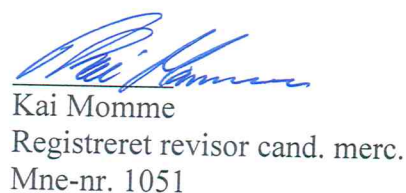 Kai Momme
Kai Momme
Registreret revisor cand. merc.
Mne-nr. 1051